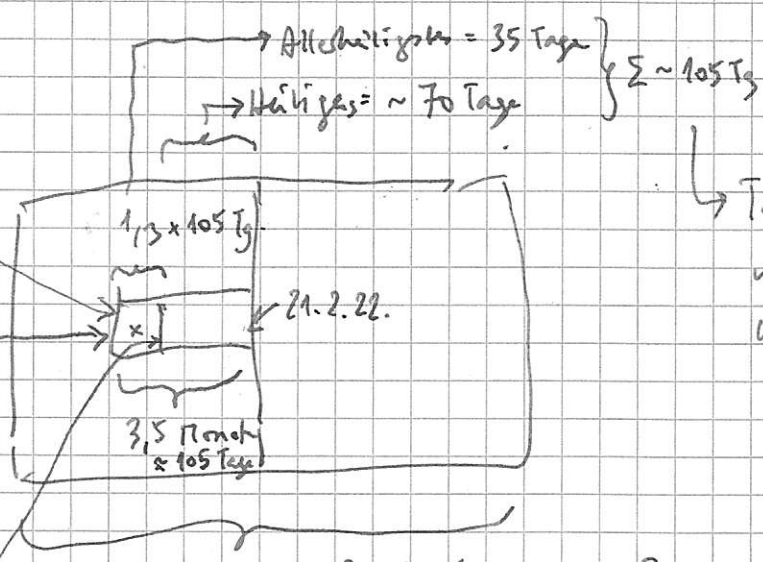 Allerheiligstes = 35 Tage
Heiliges = ~ 70 Tage
Σ ~ 105 Tg
1/3 * 105 Tg.
x
21.2.22.
3,5 Monate
≈ 105 Tage